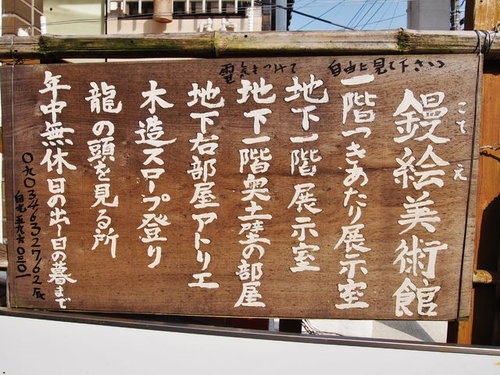 自由に見て下さい
電気をつけて
こてえ
鏝絵美術館
一階つきあたり展示室
地下一階展示室
地下一階奥土壁の部屋
地下右部屋アトリエ
木造スロープ登り
龍の頭を見る所
年中無休日の出〜日の暮まで